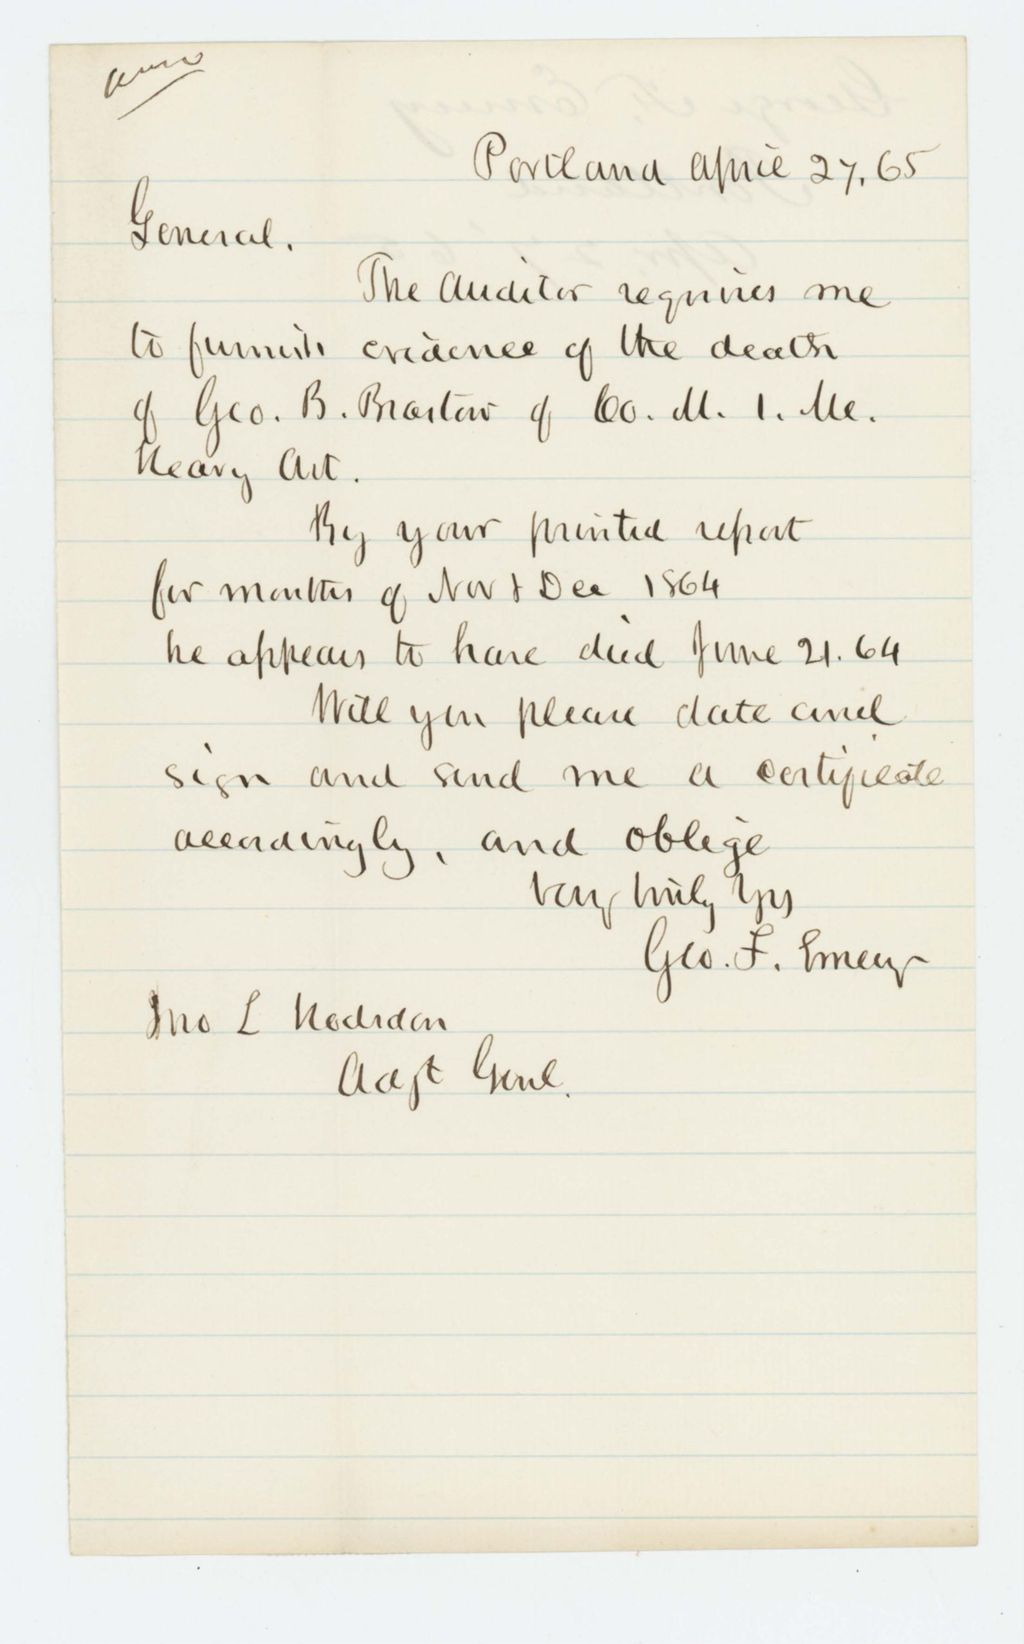 Portland April 27, 65
General.
The Auditor requires me
to furnish evidence of the death
of Geo. B. Brastow of Co. M. 1. Me.
Heavy Art.
By your printed report
for months of Nov & Dec 1864
he appears to have died June 21. 64
Will you please date and
sign and send me a certificate
accordingly, and oblige
Very truly Yrs
Geo. F. Emery
Jno L Hodsdon
Adjt Genl.